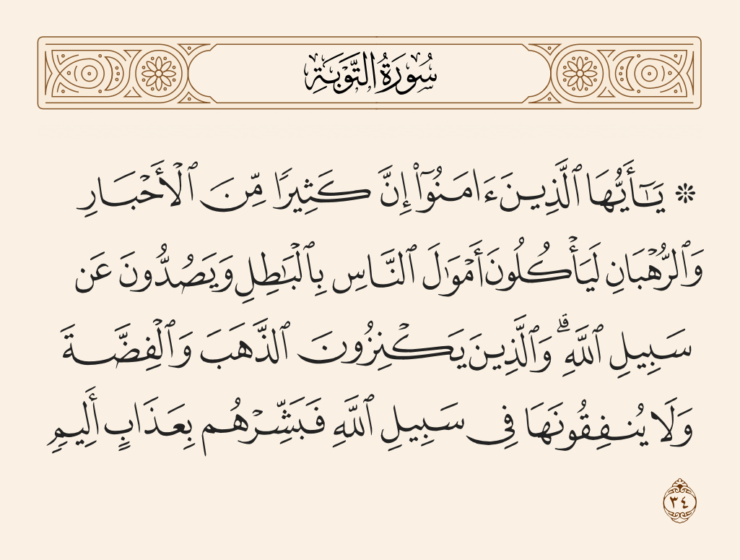 سُورَةُ التَّوۡبَةِ
۞ يَـٰٓأَيُّهَا ٱلَّذِينَ ءَامَنُوٓاْ إِنَّ كَثِيرٗا مِّنَ ٱلۡأَحۡبَارِ
وَٱلرُّهۡبَانِ لَيَأۡكُلُونَ أَمۡوَٰلَ ٱلنَّاسِ بِٱلۡبَٰطِلِ وَيَصُدُّونَ عَن
سَبِيلِ ٱللَّهِۗ وَٱلَّذِينَ يَكۡنِزُونَ ٱلذَّهَبَ وَٱلۡفِضَّةَ
وَلَا يُنفِقُونَهَا فِي سَبِيلِ ٱللَّهِ فَبَشِّرۡهُم بِعَذَابٍ أَلِيمٖ
٣٤